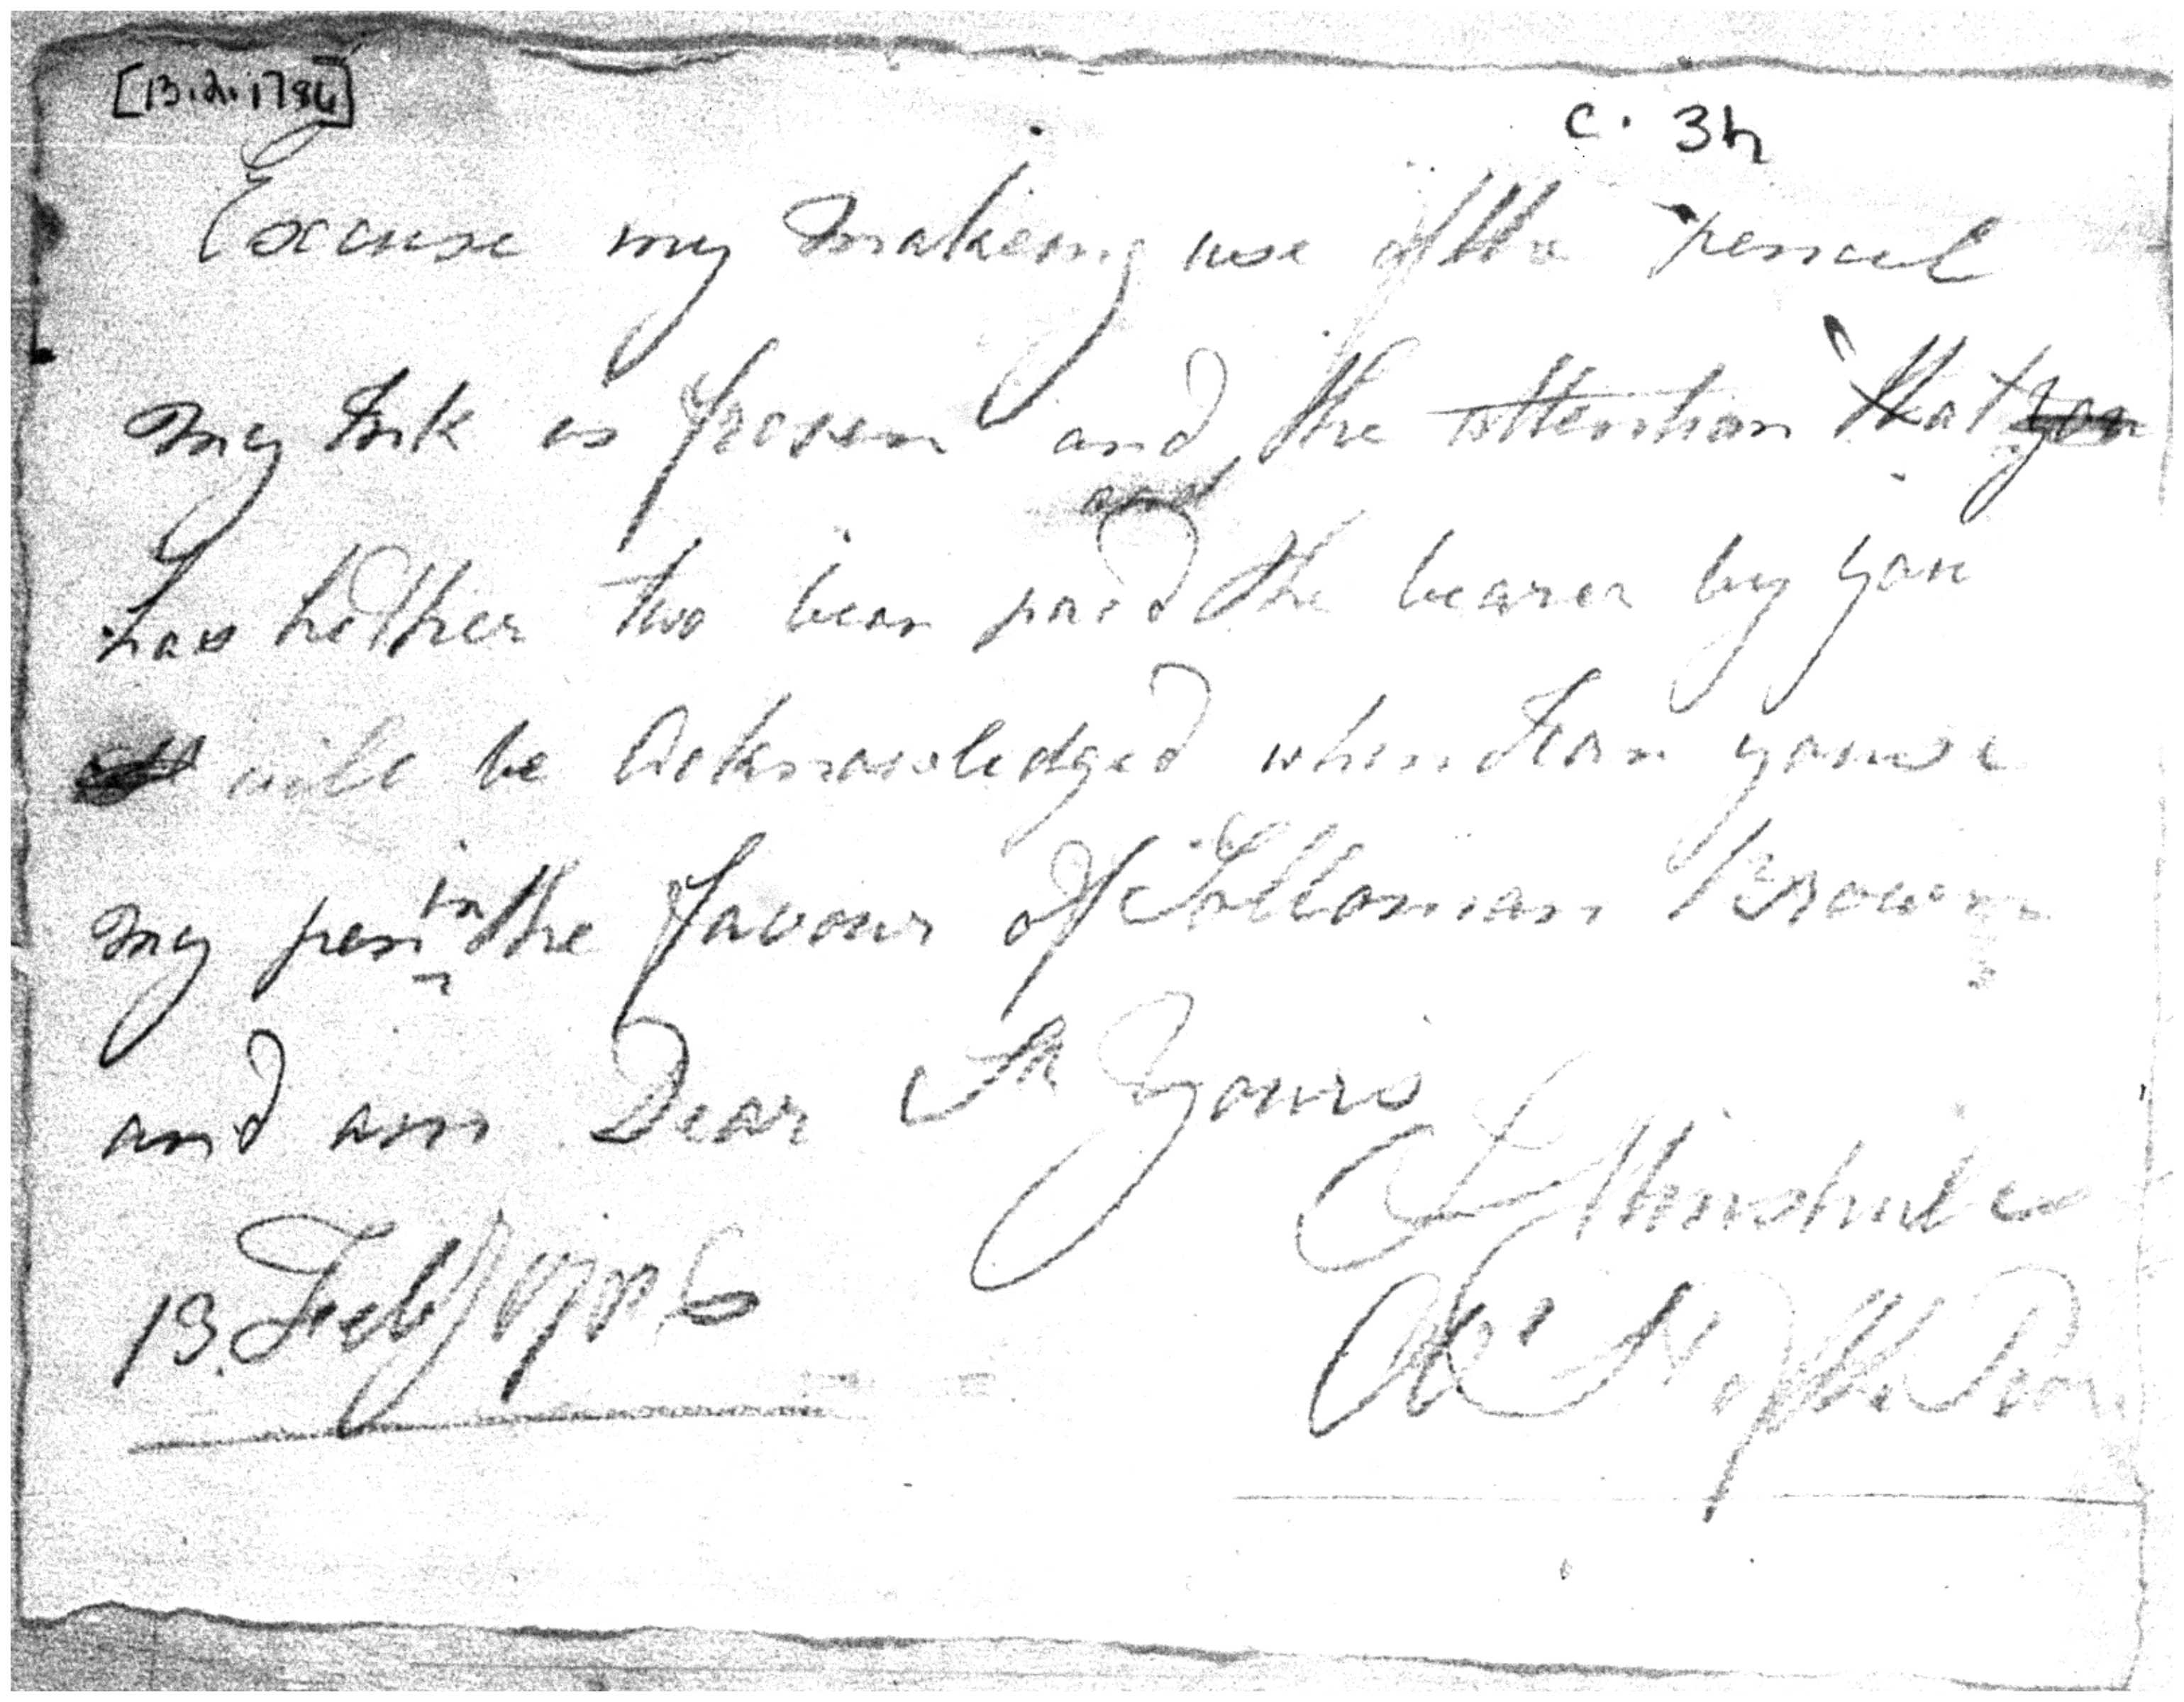 [13.2.1786]
c. 34
Excuse my makeing use of the pencil
my Ink is frosen and the attention that you
and
has hither two been paid the bearer by you
will be Acknowledged when I can youse
my pen in the favour of Solloman Brown
and am Dear Sr Yours
L Minshull
13 Feby 1786